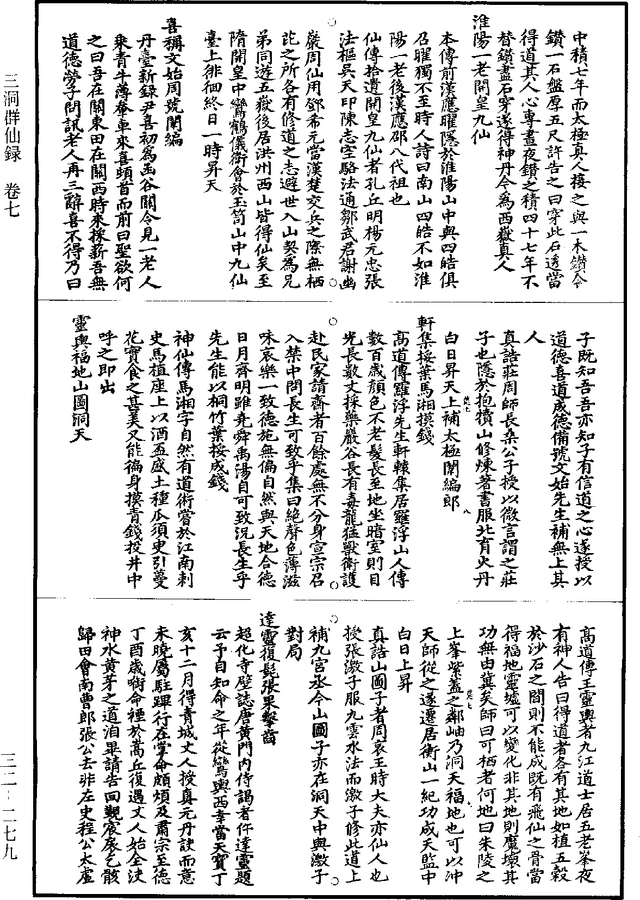 三洞群仙録　卷七
三二—二七九
中積七年而太極真人接之與一木鑽令
鑽一石盤厚五尺許告之曰穿此石透當
得道其人心專晝夜鑽之積四十七年不
替鑽盡石穿遂得神丹今為西嶽真人
淮陽一老開皇九仙
本傳前漢應曜隱於淮陽山中與四皓俱
召曜獨不至時人詩曰南山四皓不如淮
陽一老後漢應邵八代祖也
仙傳拾遺開皇九仙者孔丘明楊元忠張
法樞吳天印陳志室駱法通鄒武君謝幽
巖周仙用鄧希元當漢楚交兵之際無栖
託之所各有修道之志避世入山契為兄
弟同遊五嶽後居洪州西山皆得仙矣至
隋開皇中鸞鶴儀衛會於玉笥山中九仙
臺上徘徊終日一時昇天
喜稱文始周號闈編
丹臺新録尹喜初為函谷關令見一老人
乘青牛薄軬車來喜頓首而前曰聖欲何
之曰吾在關東田在關西時來採薪吾無
道德勞子問訊老人再三辭喜不得乃曰
子既知吾吾亦知子有信道之心遂授以
道德喜道成德備號文始先生補無上真
人
真誥莊周師長桑公子授以微言謂之莊
子也隱於抱犢山修煉著書服北育火丹
白日昇天上補太極闈編郎
軒集挼葉馬湘摸錢
高道傳羅浮先生軒轅集居羅浮山人傳
數百歲顏色不老髮長至地坐暗室則目
光長數丈採藥巖谷長有毒龍猛獸衛護
赴民家請齋者百餘處無不分身宣宗召
入禁中問長生可致乎集曰絶聲色薄滋
味哀樂一致德施無偏自然與天地合德
日月齊明雖堯舜禹湯自可致況長生乎
先生能以桐竹葉挼成錢
神仙傳馬湘字自然有道術嘗於江南刺
史馬植座上以酒盃盛土種瓜須臾引蔓
花實食之甚美又能徧身摸青錢投井中
呼之即出
靈輿福地山圖洞天
高道傳王靈輿者九江道士居五老峯夜
有神人告曰得道者各有其地如植五穀
於沙石之間則不能成既有飛仙之骨當
得福地靈墟可以變化非其地則魔壞其
功無由冀矣師曰可栖者何地曰朱陵之
上峯紫蓋之鄰岫乃洞天福地也可以沖
天師從之遂遷居衡山一紀功成天監中
白日上昇
真誥山圖子者周哀王時大夫亦仙人也
授張激子服九雲水法而激子修此道上
補九宮丞今山圖子亦在洞天中與激子
對局
達靈復髭張果擊齒
超化寺壁誌唐黄門内侍謁者仵達靈題
云予自知命之年從鸞輿西幸當天寶丁
亥十二月得青城丈人授真元丹訣而意
未曉屬駐蹕行在掌命頗煩及肅宗至德
丁酉歲銜命種於嵩丘復遇丈人始全決
神水黄芽之道洎畢請告回覲宸扆乞骸
歸田會南曹郎張公去非左史程公太虛